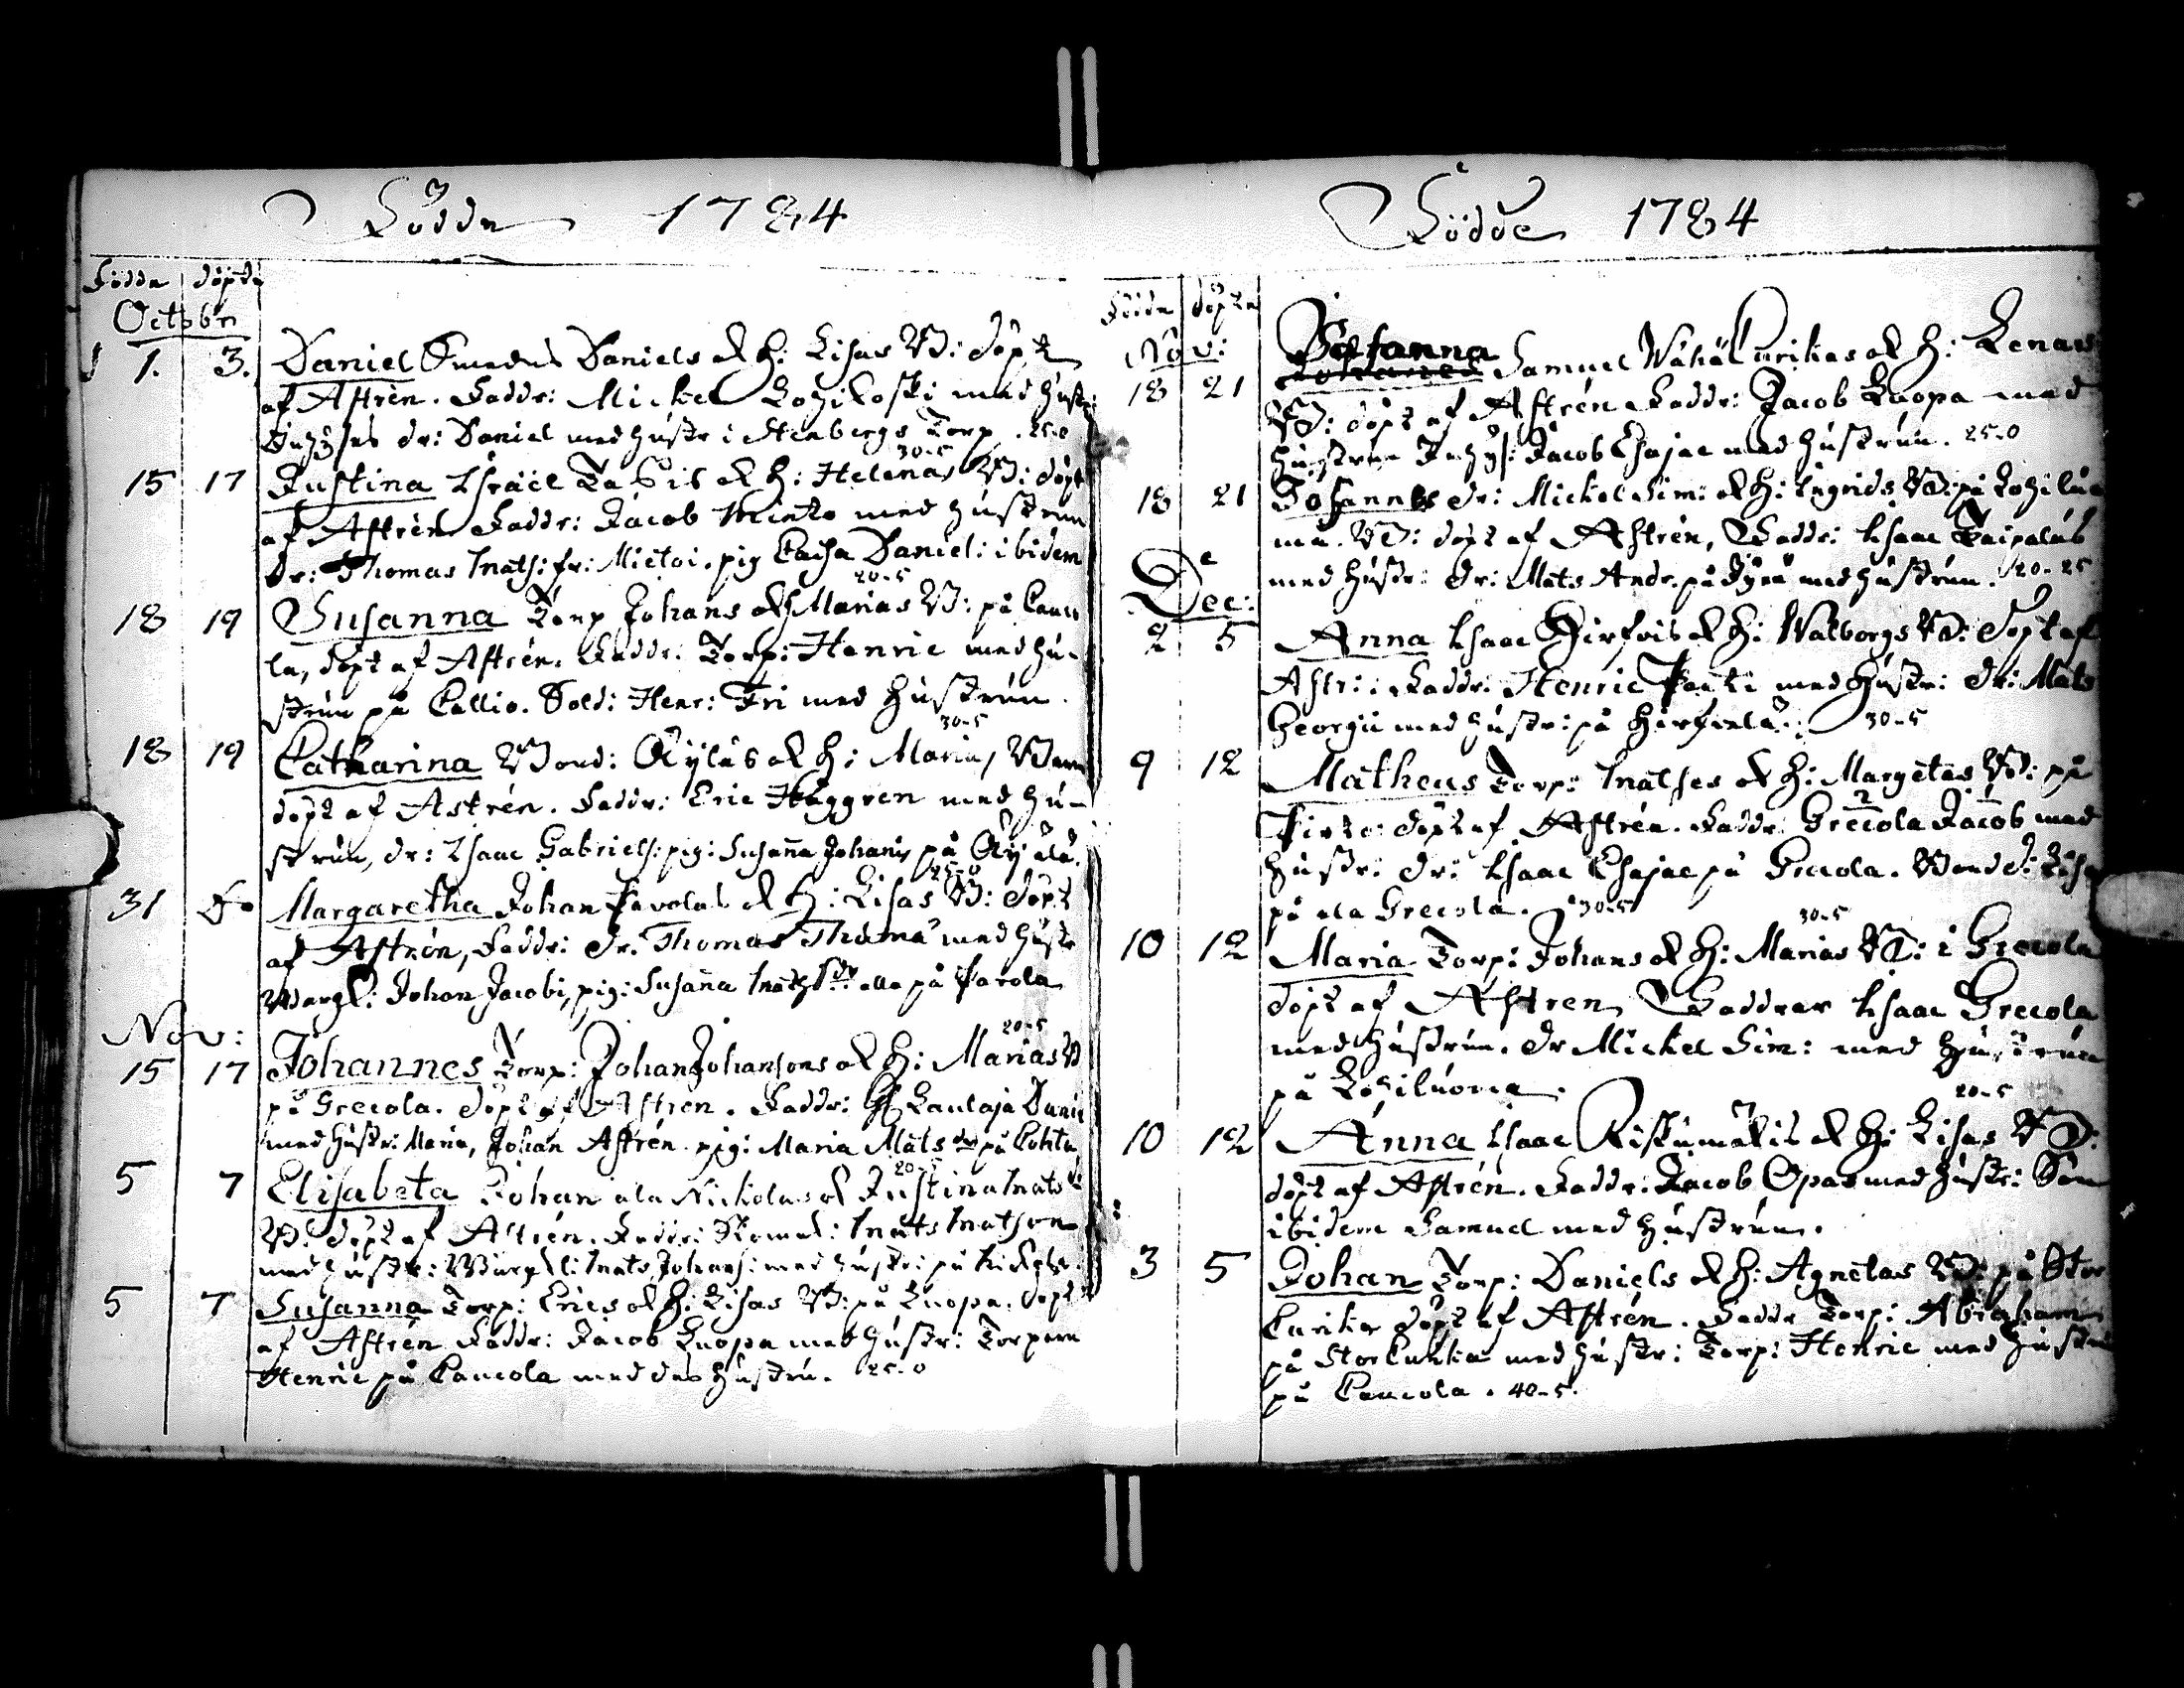 Födde 1784
Födde döpte
Octobr
1. 3. Daniel Smedens Daniels & H: Lisas B: döpt
af Astrén. Faddr: Mickel med hustr:
dr: Daniel med hustr i Stenbergs Torp. 25-0
30-5
15 17 Justina & H: Helenas B: döpt
af Astrén Faddr: Jacob med hustrun
dr: Thomas Mats: fr: Mietoi. pig Caisa Daniel: ibidem
20-5
18 19 Susanna Torp Johans & H Marias B: på Cauco
la, döpt af Astrén. Faddr: Torp: Henric med hu-
strun på Callio. Sold: Henr: Fri med hustrun.
30-5
18 19 Catharina Bond: & H: Marias Barn
döpt af Astrén. Faddr: Eric Häggren med hu-
strun, dr: Isaac Gabriels: pig: Susanna Johans på
25-0
31 Margaretha Johan Pavolas & H: Lisas B: döpt
af Astrén, Faddr: dr. Thomas Thoma med hustr
Johan Jacobi, pig: Susanna Mats alla på Parola
Nov:
20-5
15 17 Johannes Torp: Johan Johansons & H: Marias B
på Grecola. döpt af Astrén. Faddr: Laulaja Dani
med hustr: Maria, Johan Astrén. pig: Maria Mats dr på
20-5
5 7 Elisabeta Johan ala Nickolas & Justina Mats
B: döpt af Astrén. Faddr: Mats Matson
med hustr: Mats Johans: med hustr: på
5 7 Susanna Torp: Erics & H: Lisas B: på Knopa. döpt
af Astrén Faddr: Jacob Knopa med hustr: Torparn
Henric på Caucola med des hustru. 25-0
Födde 1784
Födde döpte
Nov:
18 21 Susanna Samuel Wähä Curikas & H: Lenas
B: döpt af Astrén Faddr: Jacob Knopa med
hustrun Inhys: Jacob Esajae med hustrun. 25-0
18 21 Johannes dr: Mickel Sim: & H: Ingrids B: på Lohilua
ma. B: döpt af Astrén, Faddr: Isaac Taipalus
med hustr: dr: Mats Andr. på med hustrun. 20-25
Dec:
2 5 Anna Isaac Hirfvis & H: Walborgs B: döpt af
Astr:. Faddr: Henric med hustr: dr: Mats
Georgii med hustr: på Hirfvelä. 30-5
9 12 Matheus Torp: Matses & H: Margetas B: på
döpt af Astrén. Faddr: Grecola Jacob med
hustr: dr: Isaac Esajae på Grecola. Bond d: Lisa
på ala Grecola. 30-5
30-5
10 12 Maria Torp: Johans & H: Marias B: i Grecola
döpt af Astren Faddrar Isaac Grecola
med hustrun. dr Mickel Sim: med hustrun
på Lohiluoma.
20-5
10 12 Anna Isaac Riskumäkis & H: Lisas B:
döpt af Astrén. Faddr: Jacob Opas med hustr: Son
ibidem Samuel med hustrun.
3 5 Johan Torp: Daniels & H: Agnetas B: på Stor
Curika döpt af Astrén. Faddr Torp: Abraham
på StorCurika med hustr: Torp: Henric med hustru
på Caucola. 40-5.